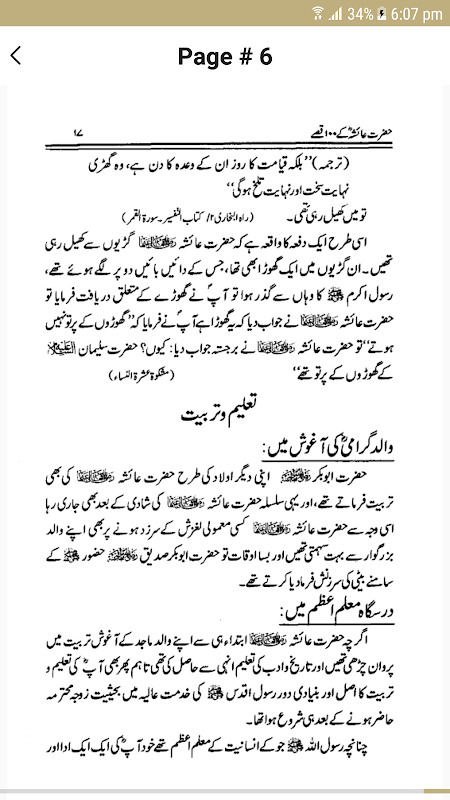 34% 6:07 pm
Page # 6
حضرت عائشہؓ کے ۱۰۰ قصے ۱۷
(ترجمہ) ’’بلکہ قیامت کا روز ان کے وعدہ کا دن ہے، وہ گھڑی
نہایت سخت اور نہایت تلخ ہوگی‘‘
تو میں کھیل رہی تھی۔ (راہ البخاری ۲/ کتاب التفسیر۔ سورۃ القمر)
اسی طرح ایک دفعہ کا واقعہ ہے کہ حضرت عائشہ رضی اللہ عنہا گڑیوں سے کھیل رہی
تھیں۔ ان گڑیوں میں ایک گھوڑا بھی تھا، جس کے دائیں بائیں دو پر لگے ہوئے تھے،
رسول اکرم ﷺ کا وہاں سے گذر ہوا تو آپؐ نے گھوڑے کے متعلق دریافت فرمایا تو
حضرت عائشہ رضی اللہ عنہا نے جواب دیا کہ یہ گھوڑا ہے آپؐ نے فرمایا کہ ’’گھوڑوں کے پر تو نہیں
ہوتے‘‘ تو حضرت عائشہ رضی اللہ عنہا نے برجستہ جواب دیا: کیوں؟ حضرت سلیمان علیہ السلام
کے گھوڑوں کے پر تو تھے‘‘ (مشکوۃ عشرۃ النساء)
تعلیم و تربیت
والد گرامیؓ کی آغوش میں:
حضرت ابوبکر رضی اللہ عنہ اپنی دیگر اولاد کی طرح حضرت عائشہ رضی اللہ عنہا کی بھی
تربیت فرماتے تھے، اور یہی سلسلہ حضرت عائشہ رضی اللہ عنہا کی شادی کے بعد بھی جاری رہا
اسی وجہ سے حضرت عائشہ رضی اللہ عنہا کسی معمولی لغزش کے سرزد ہونے پر بھی اپنے والد
بزرگوار سے بہت سہمتی تھیں اور بسا اوقات تو حضرت ابوبکر صدیق رضی اللہ عنہ حضور ﷺ کے
سامنے بیٹی کی سرزنش فرما دیا کرتے تھے۔
درسگاہ معلم اعظم میں:
اگرچہ حضرت عائشہ رضی اللہ عنہا ابتداء ہی سے اپنے والد ماجد کے آغوش تربیت میں
پروان چڑھی تھیں اور تاریخ و ادب کی تعلیم انہی سے حاصل کی تھی تاہم پھر بھی آپؓ کی تعلیم و
تربیت کا اصل اور بنیادی دور رسول اقدس ﷺ کی خدمت عالیہ میں بحیثیت زوجہ محترمہ
حاضر ہونے کے بعد ہی شروع ہوا تھا۔
چنانچہ رسول اللہ ﷺ جو کے انسانیت کے معلم اعظم تھے خود آپؓ کی ایک ایک ادا اور